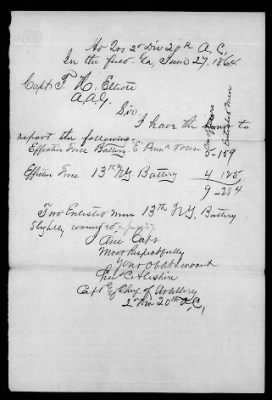 Hd Qrs 2d Div 20th A.C.
In the field Ga, June 27. 1864
Capt T. H. Elliott
A.A.G.
Sir.
I have the honor to
report the following
Officers
Enlisted Men
Effective Force Battery "E" Penna 5 - 159
Effective Force 13th N.Y. Battery 4 125
9 - 284
Two Enlisted men 13th N.Y. Battery
Slightly wounded
I am Capt
Most Respectfully
Your Obdt Servant
Capt & Chief of Artillery
2d Div 20th A.C.